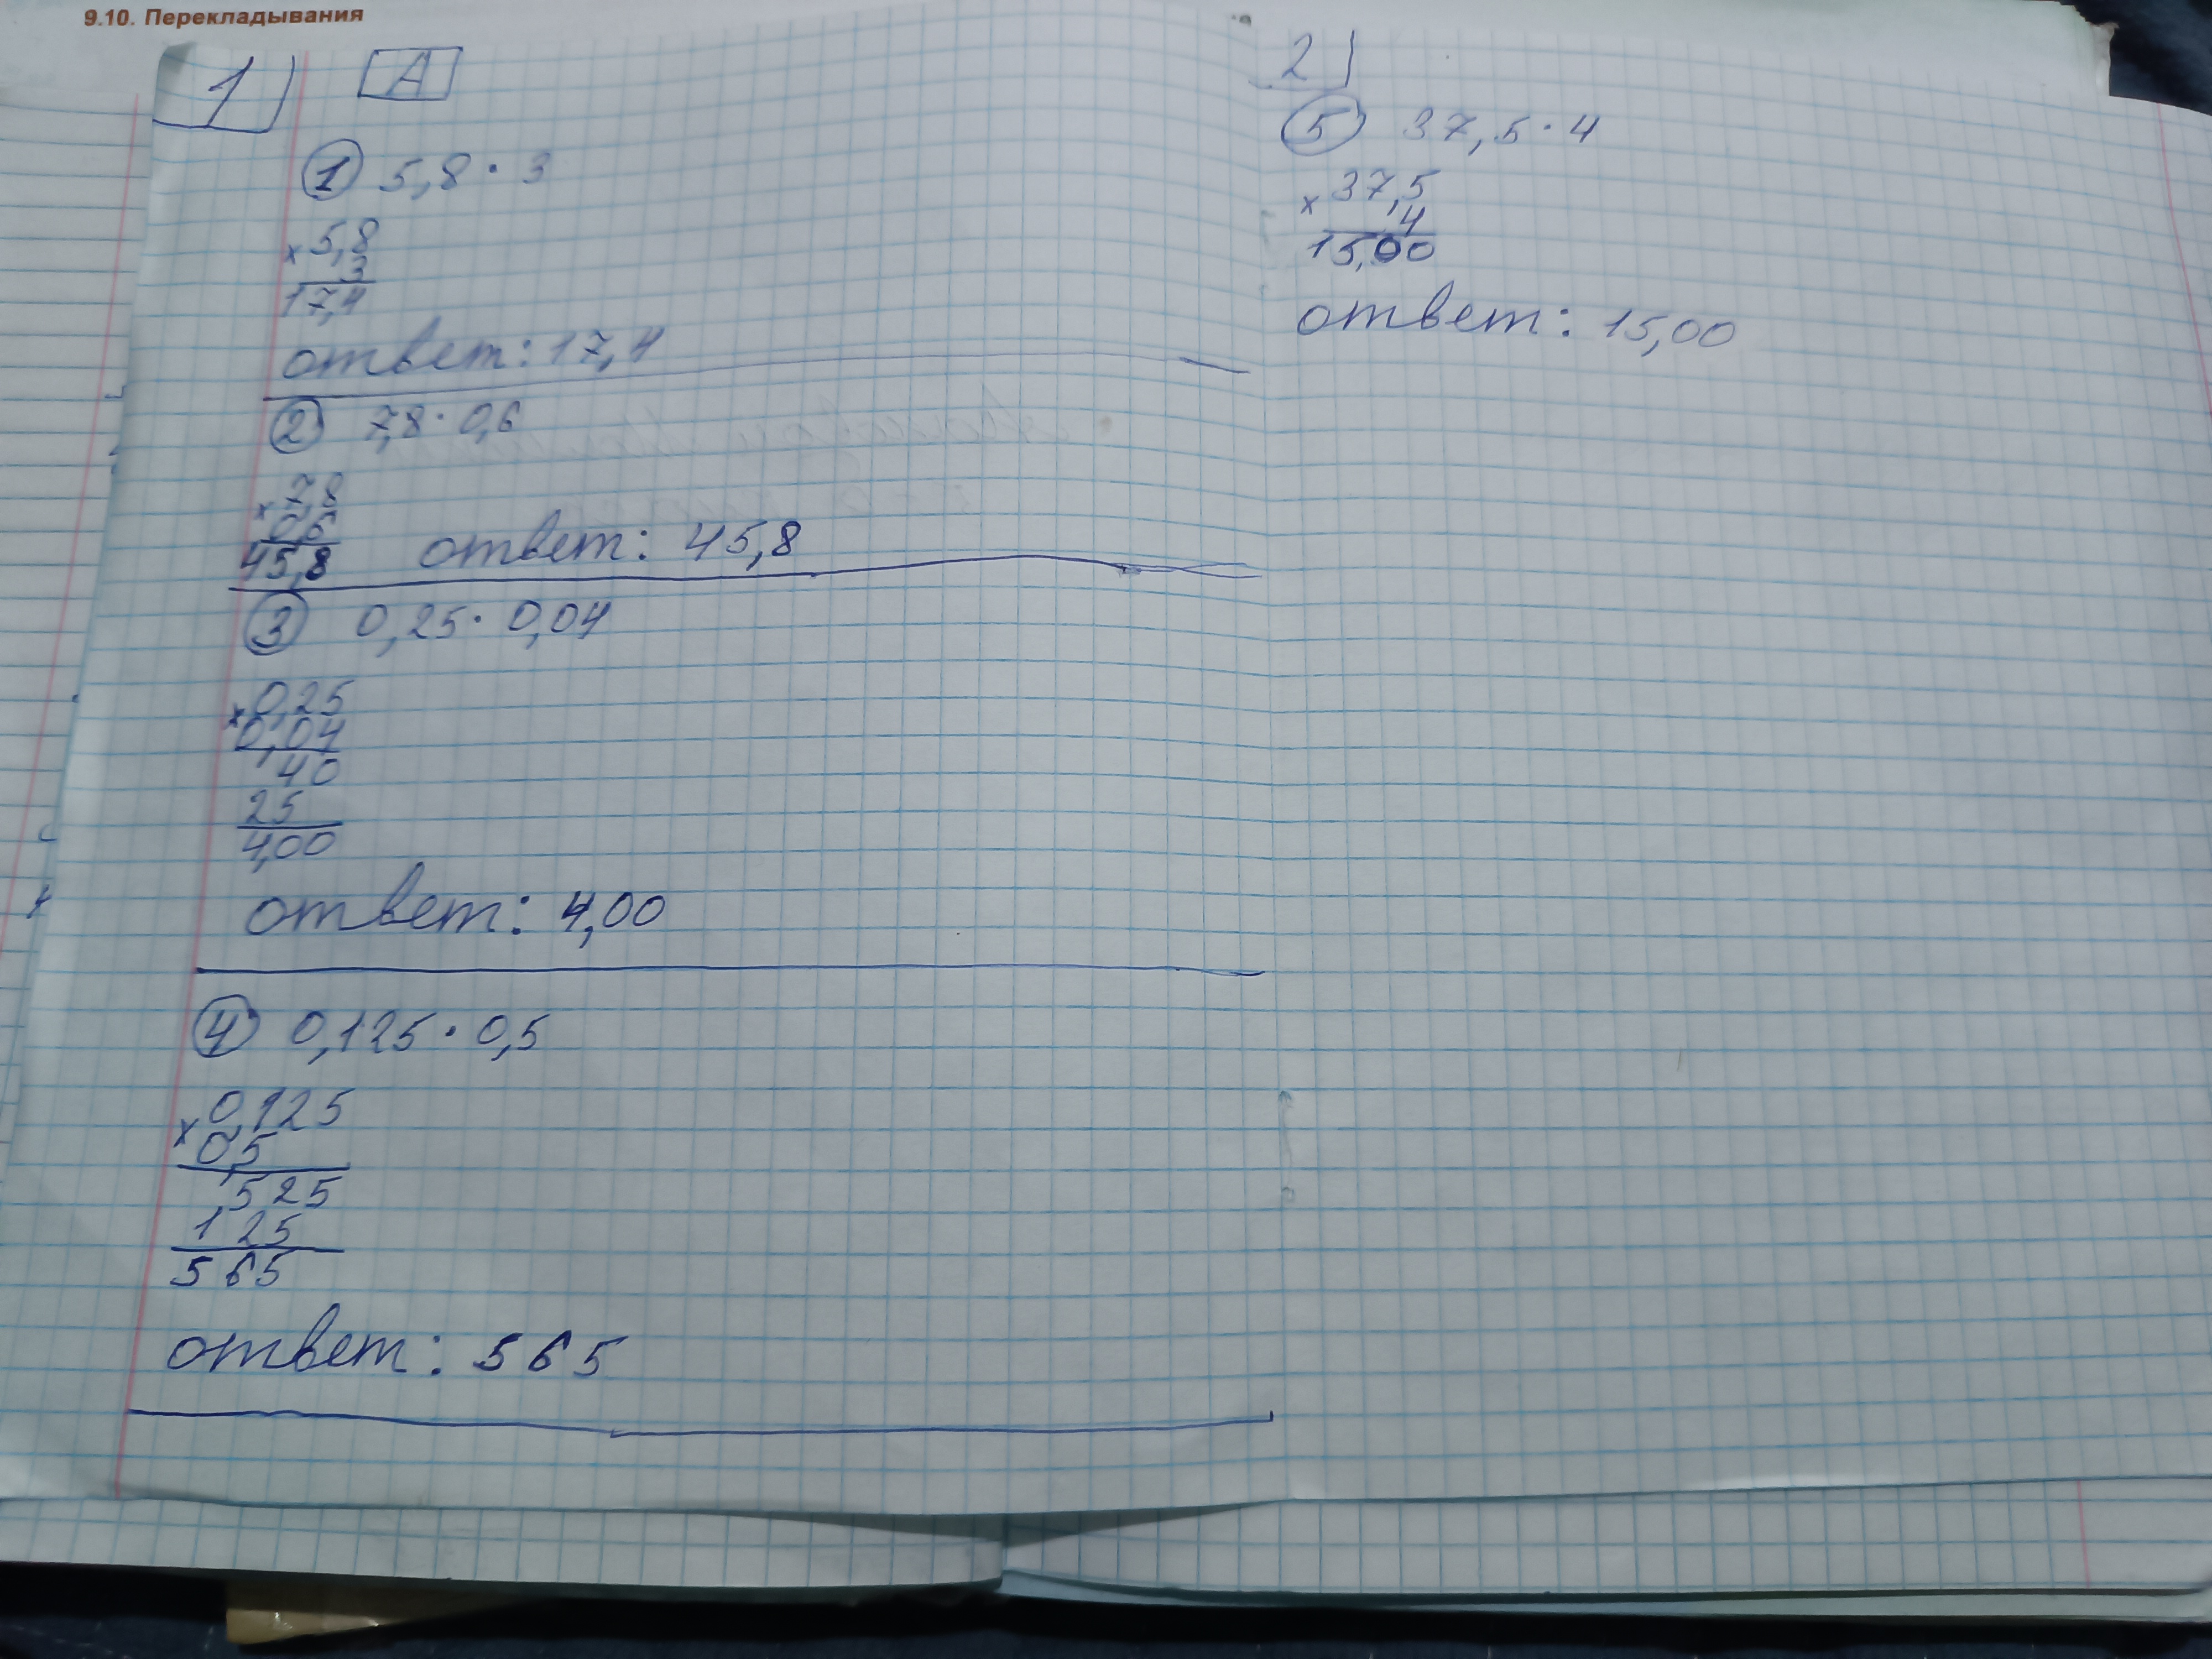 9.10. Перекладывания
1 А
① 5,8 · 3
× 5,8
3
17,4
ответ: 17,4
② 7,8 · 0,6
× 7,8
0,6
45,8 ответ: 45,8
③ 0,25 · 0,04
× 0,25
0,04
40
25
4,00
ответ: 4,00
④ 0,125 · 0,5
× 0,125
0,5
525
125
565
ответ: 565
2
⑤ 37,5 · 4
× 37,5
4
15,00
ответ: 15,00